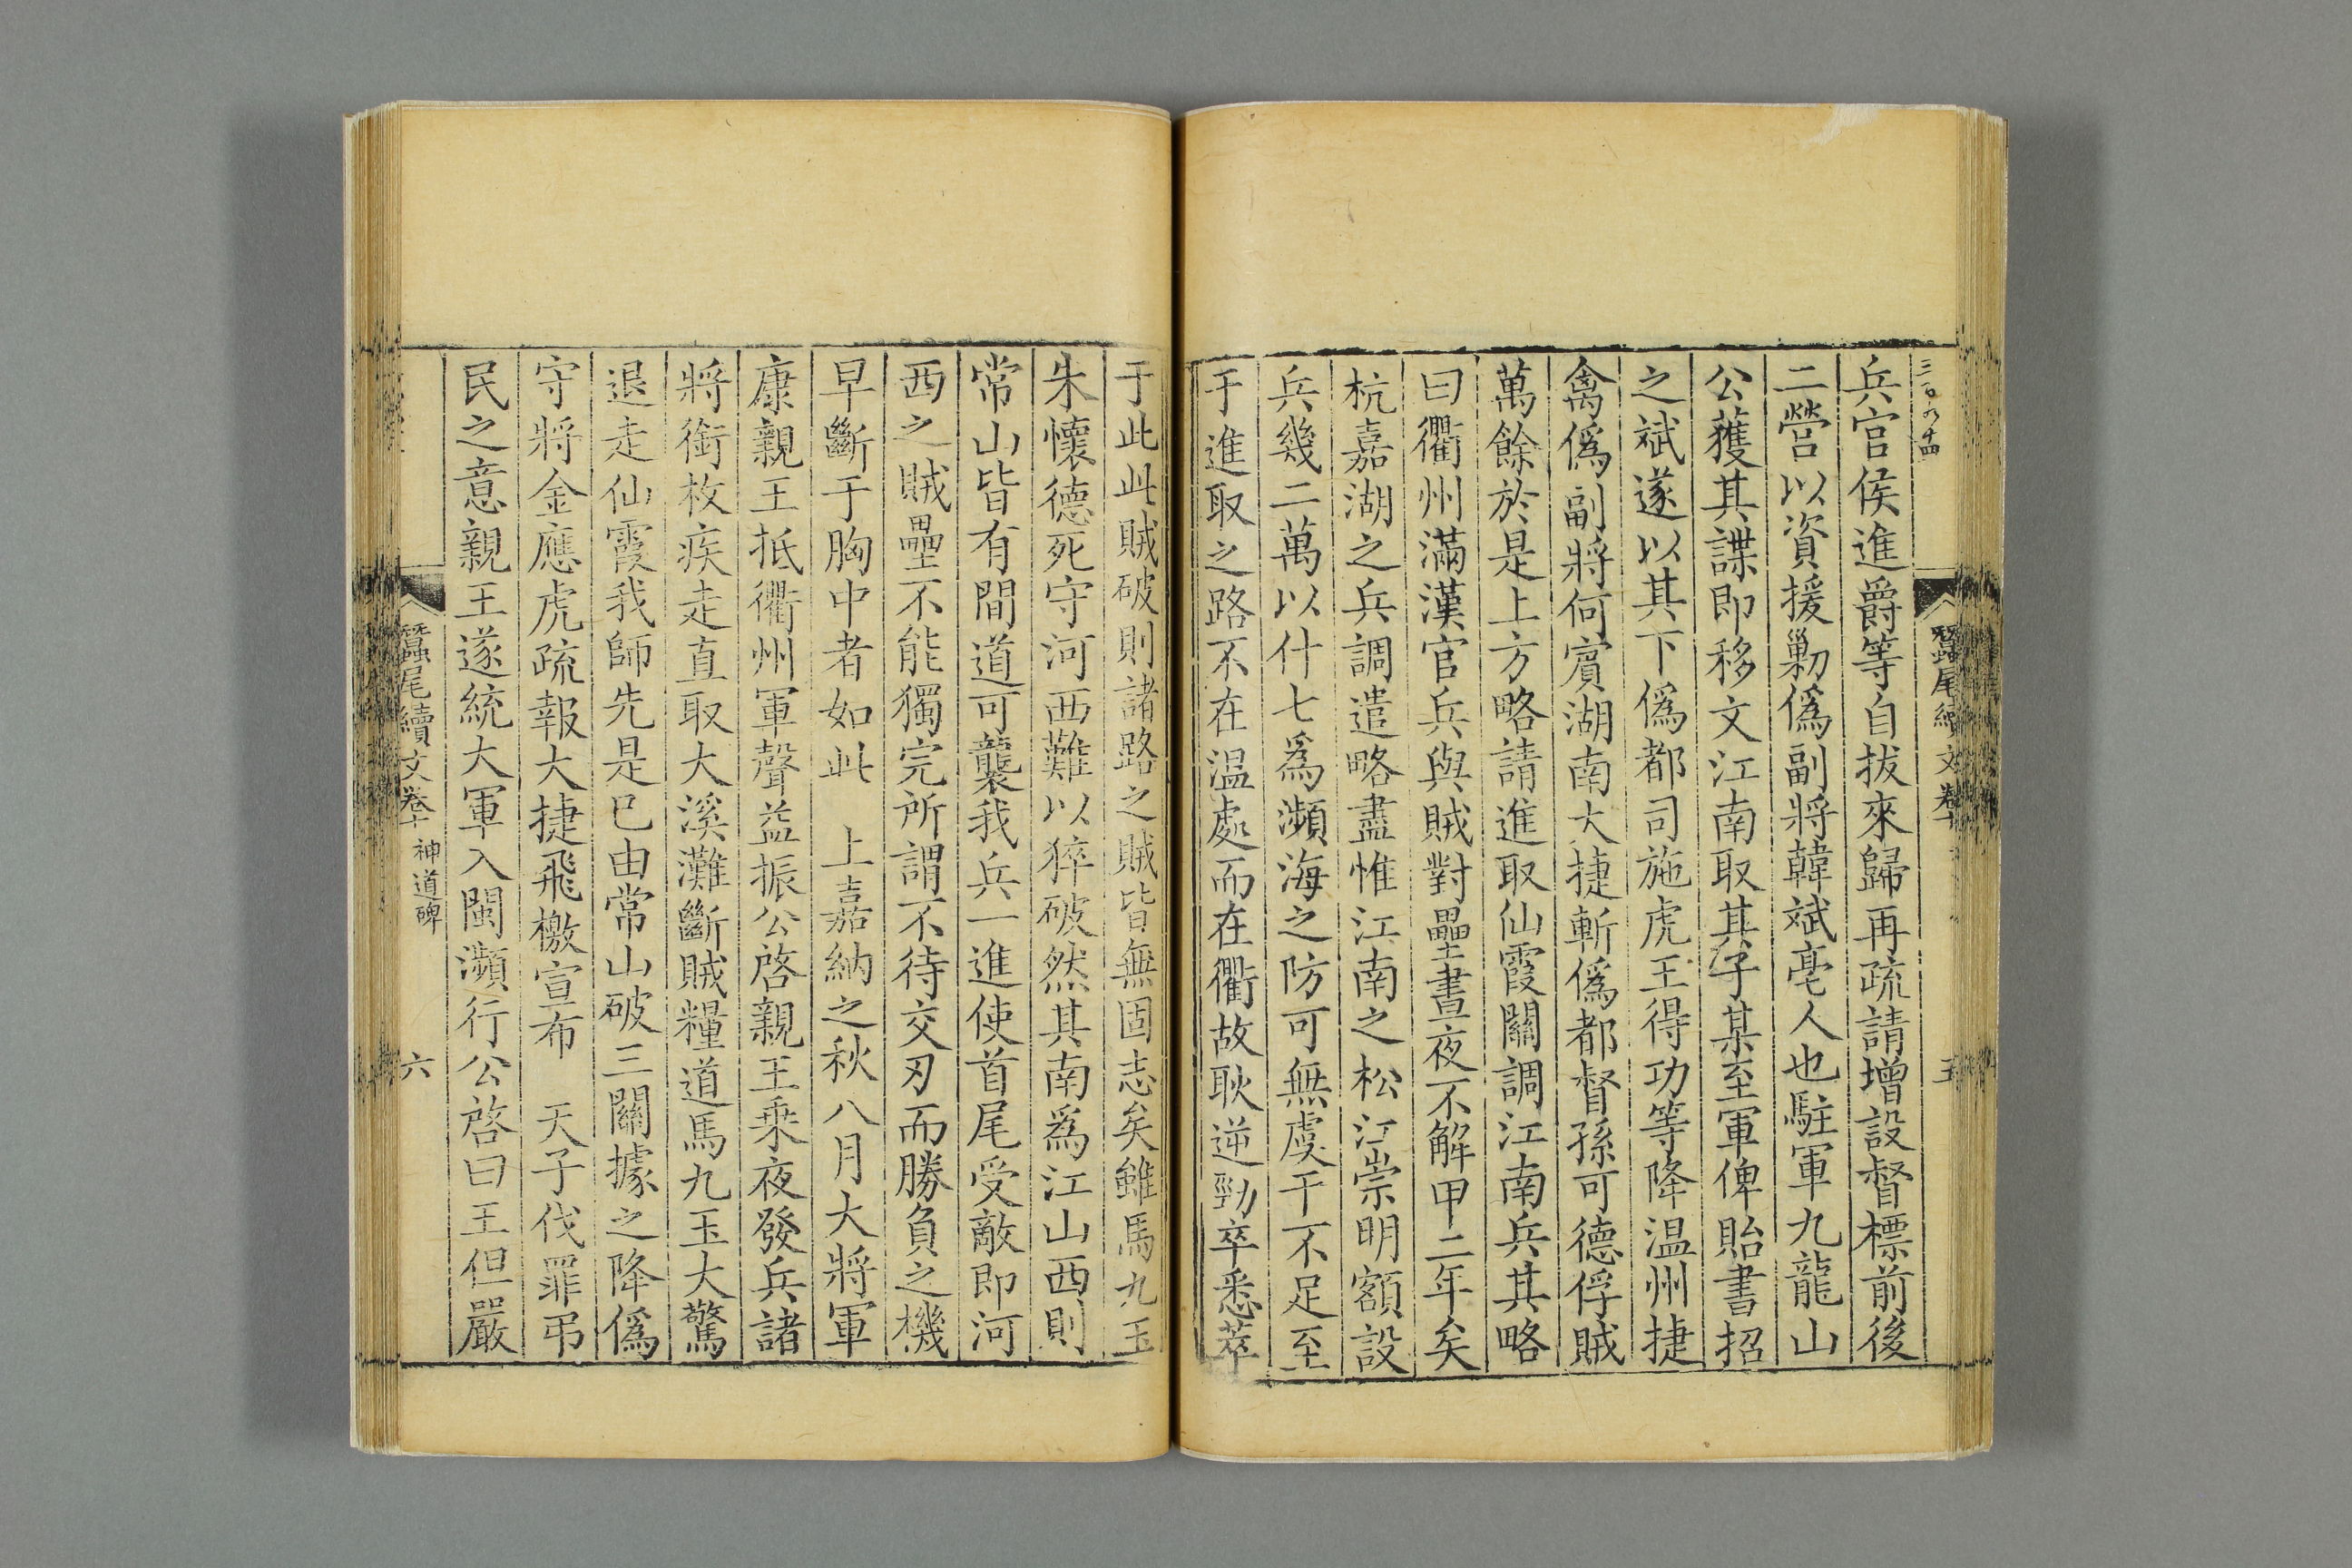 兵官侯進爵等自拔來歸再疏請增設督標前後
二營以資援勦僞副將韓斌亳人也駐軍九龍山
公獲其諜即移文江南取其子某至軍俾貽書招
之斌遂以其下僞都司施虎王得功等降温州捷
禽僞副將何賓湖南大捷斬僞都督孫可德俘賊
萬餘於是上方略請進取仙霞關調江南兵其略
曰衢州滿漢官兵與賊對壘晝夜不解甲二年矣
杭嘉湖之兵調遣略盡惟江南之松江崇明額設
兵幾二萬以什七爲瀕海之防可無虞干不足至
于進取之路不在温處而在衢故耿逆勁卒悉萃
于此此賊破則諸路之賊皆無固志矣雖馬九玉
朱懷德死守河西難以猝破然其南爲江山西則
常山皆有間道可襲我兵一進使首尾受敵即河
西之賊壘不能獨完所謂不待交刃而勝負之機
早斷于胸中者如此 上嘉納之秋八月大將軍
康親王抵衢州軍聲益振公啓親王乘夜發兵諸
將銜枚疾走直取大溪灘斷賊糧道馬九玉大驚
退走仙霞我師先是已由常山破三關據之降僞
守將金應虎疏報大捷飛檄宣布 天子伐罪弔
民之意親王遂統大軍入閩瀕行公啓曰王但嚴
蠶尾續文卷十 神道碑 六